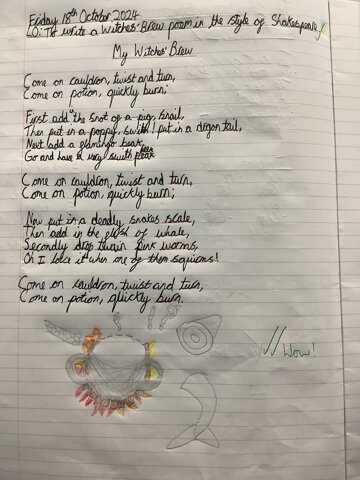 Friday 18th October 2024
LO: To write a Witches' Brew poem in the style of Shakespeare
My Witches' Brew
Come on cauldron, twist and turn,
Come on potion, quickly burn;
First add the snot of a pig, snail,
Then put in a poppy, swith! put in a dragon tail,
Next add a flamingo beak,
Go and have a very swith peek
Come on cauldron, twist and turn,
Come on potion, quickly burn;
Now put in a deadly snakes scale,
Then add in the flesh of whale,
Secondly drop twain pink worms,
Oh I love it when one of them squirms!
Come on cauldron, twist and turn,
Come on potion, quickly burn.
Wow!